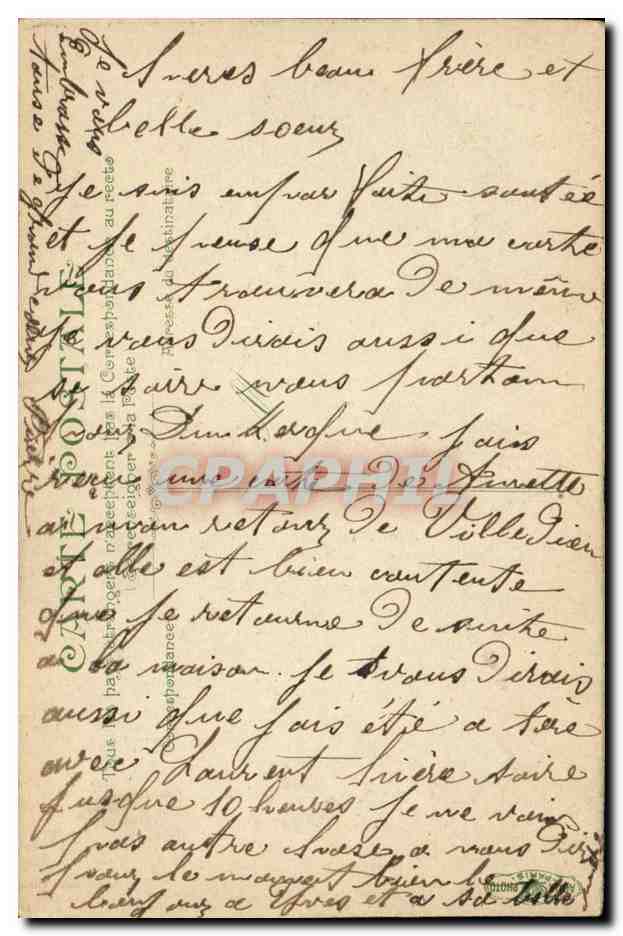 beau frère et
belle soeur
Je suis enpar faite santée
et je pense que ma carte
vous trouvera de même
Je vous dirais aussi que
se soire nous partons
pour Dunkerque jais
reçu une carte de Annette
a mon retour de Villedieu
et elle est bien contente
que je retourne de suite
a la maison. Je vous dirais
aussi que jais étié a
avec Laurent hière soire
jusque 10 heures je ne vois
pas autre chose a vous dire
pour le moment bien le
bonjour a Yves et a sa belle
Je vous
Embrasse
tous de grand coeur
CARTE POSTALE
Tous les pays étrangers n'acceptent pas la Correspondance au recto
(Se renseigner à la Poste)
Correspondance
Adresse du destinataire
CPAPHIL
PHOTO
PARIS